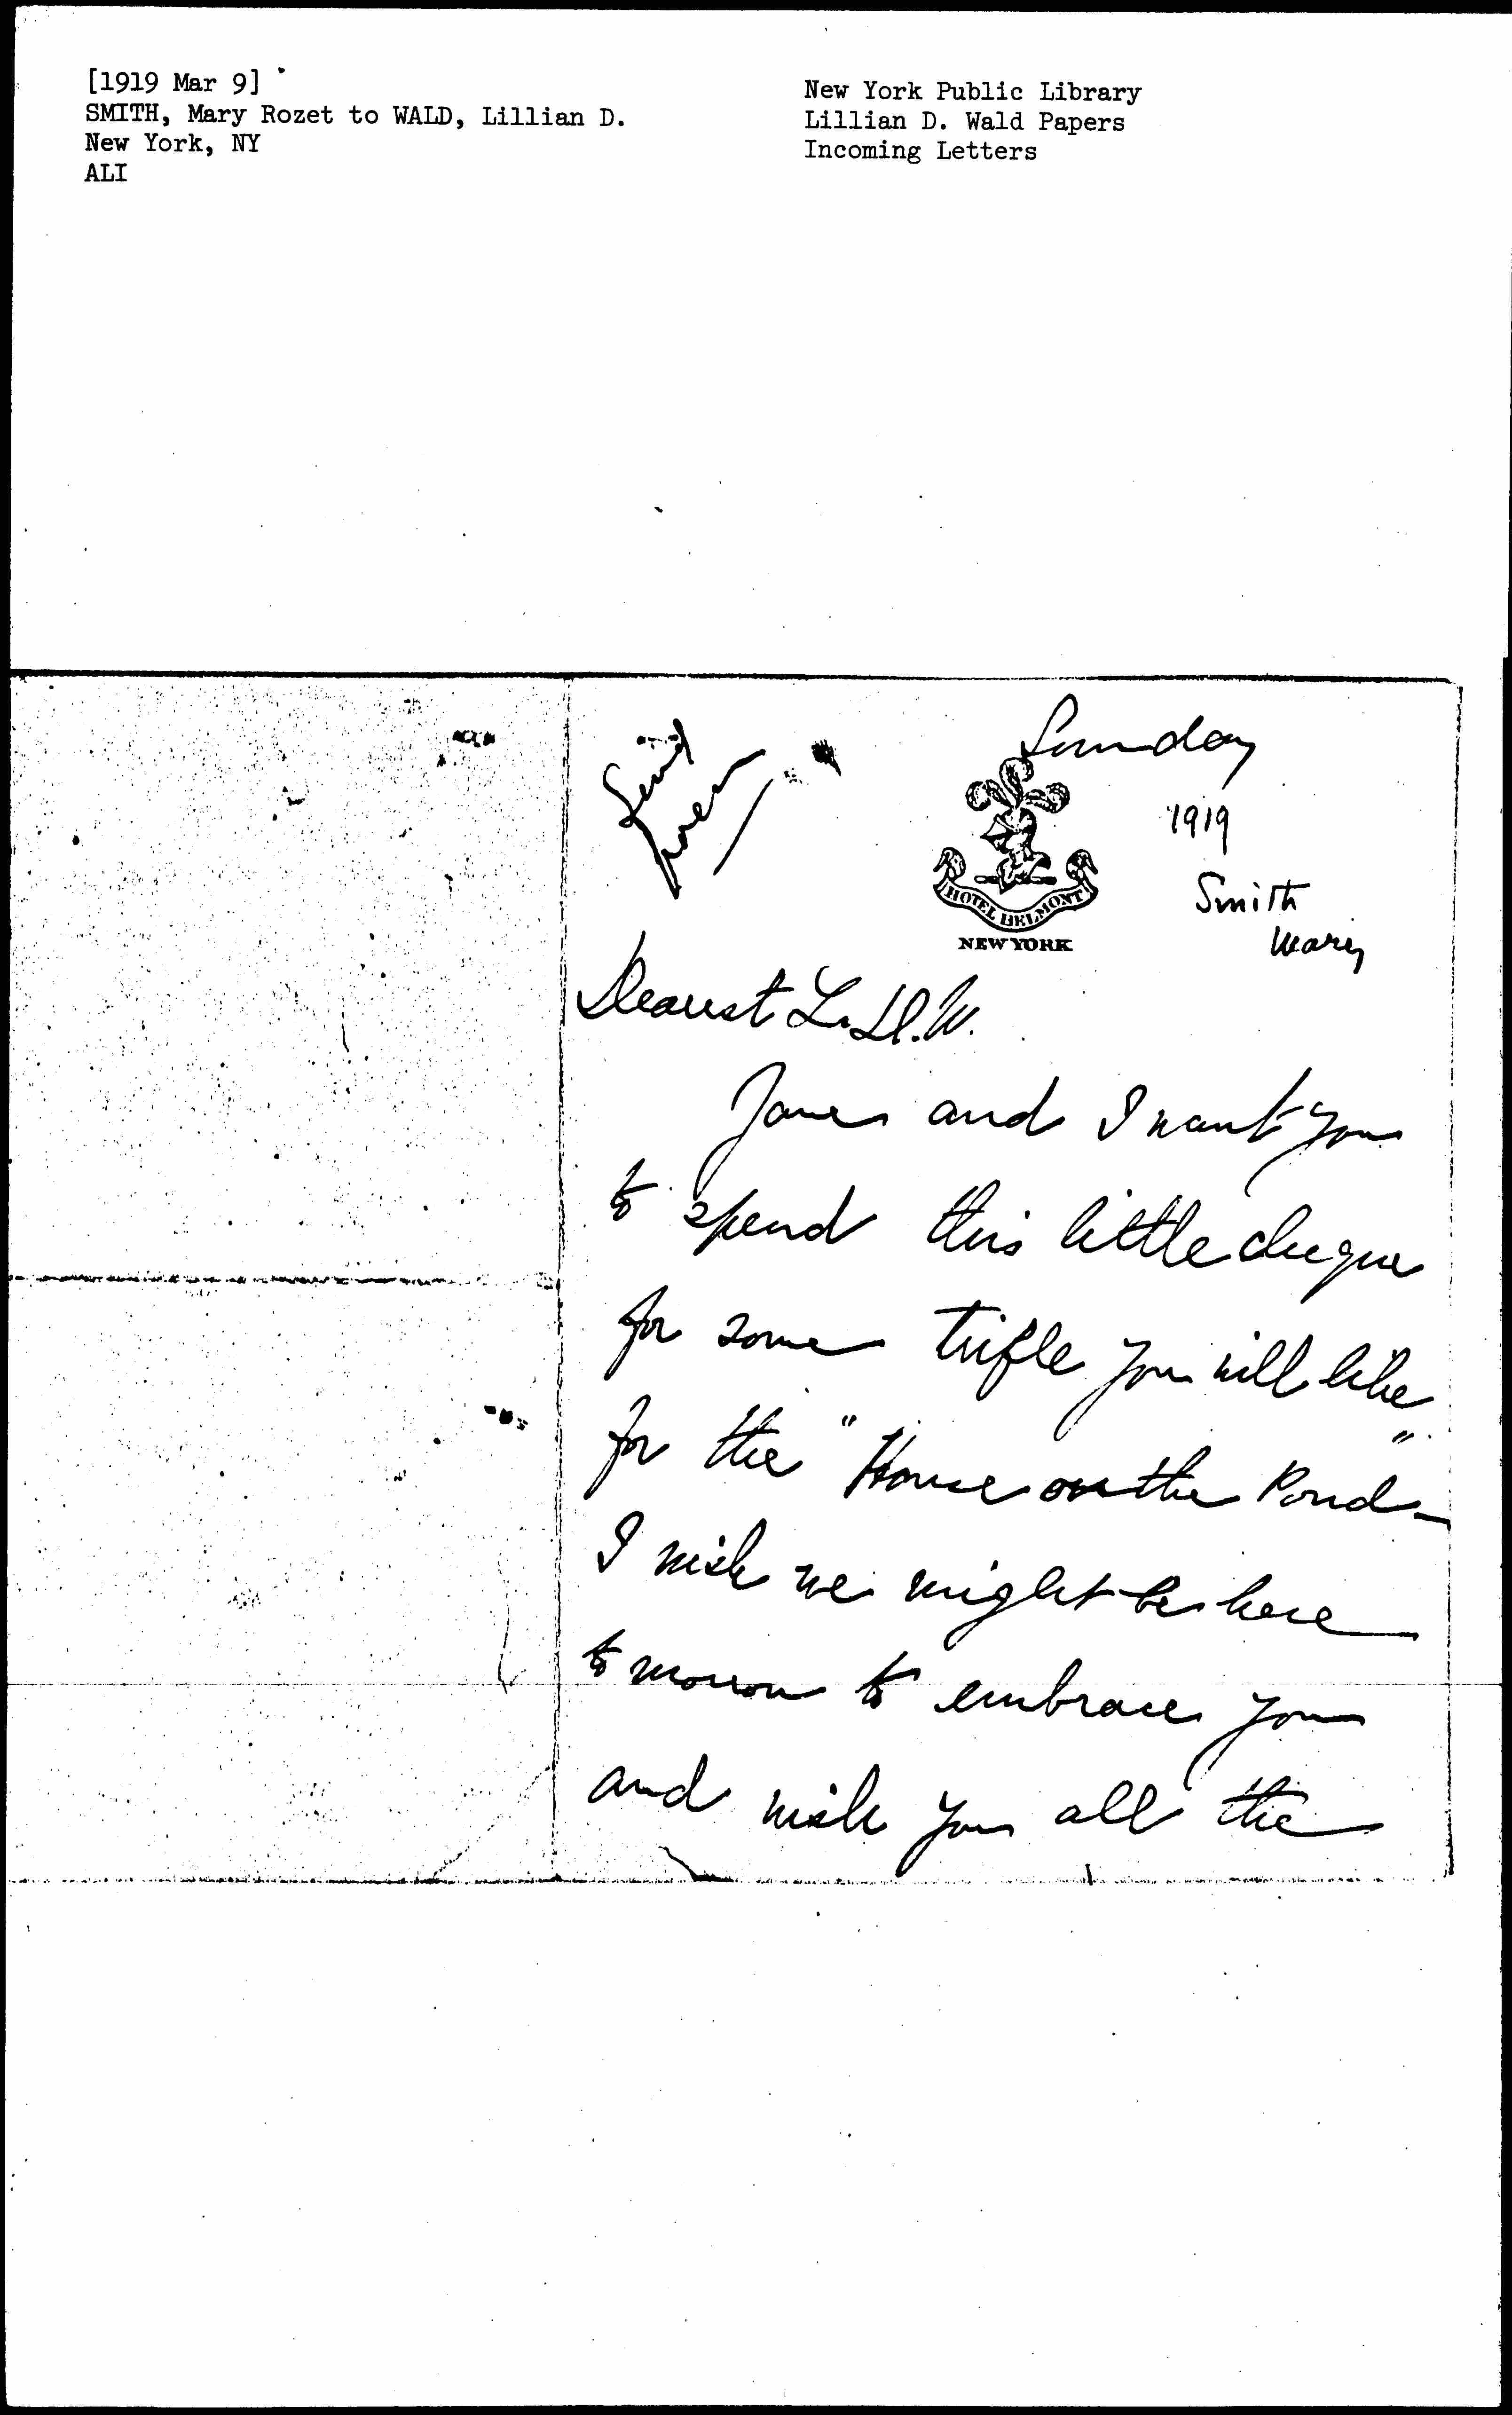 [1919 Mar 9]
SMITH, Mary Rozet to WALD, Lillian D.
New York, NY
ALI
New York Public Library
Lillian D. Wald Papers
Incoming Letters
Sunday
1919
HOTEL BELMONT
NEW YORK
Smith
Mary
Dearest L. D. W.
Jane and I want you
to spend this little cheque
for some trifle you will like
for the "House on the Pond" -
I wish we might be here
to morrow to embrace you
and wish you all the